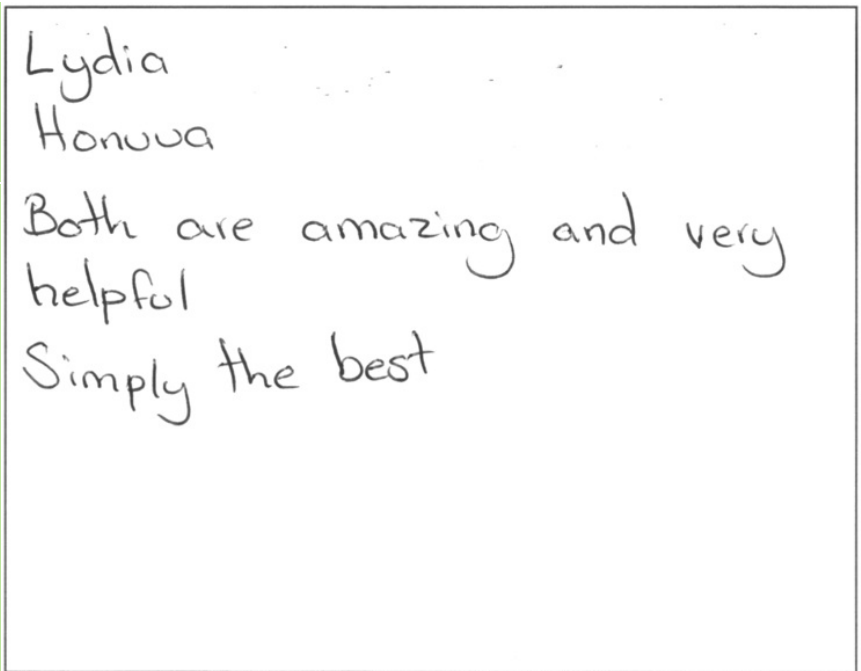 Lydia
Honuua
Both are amazing and very
helpful
Simply the best